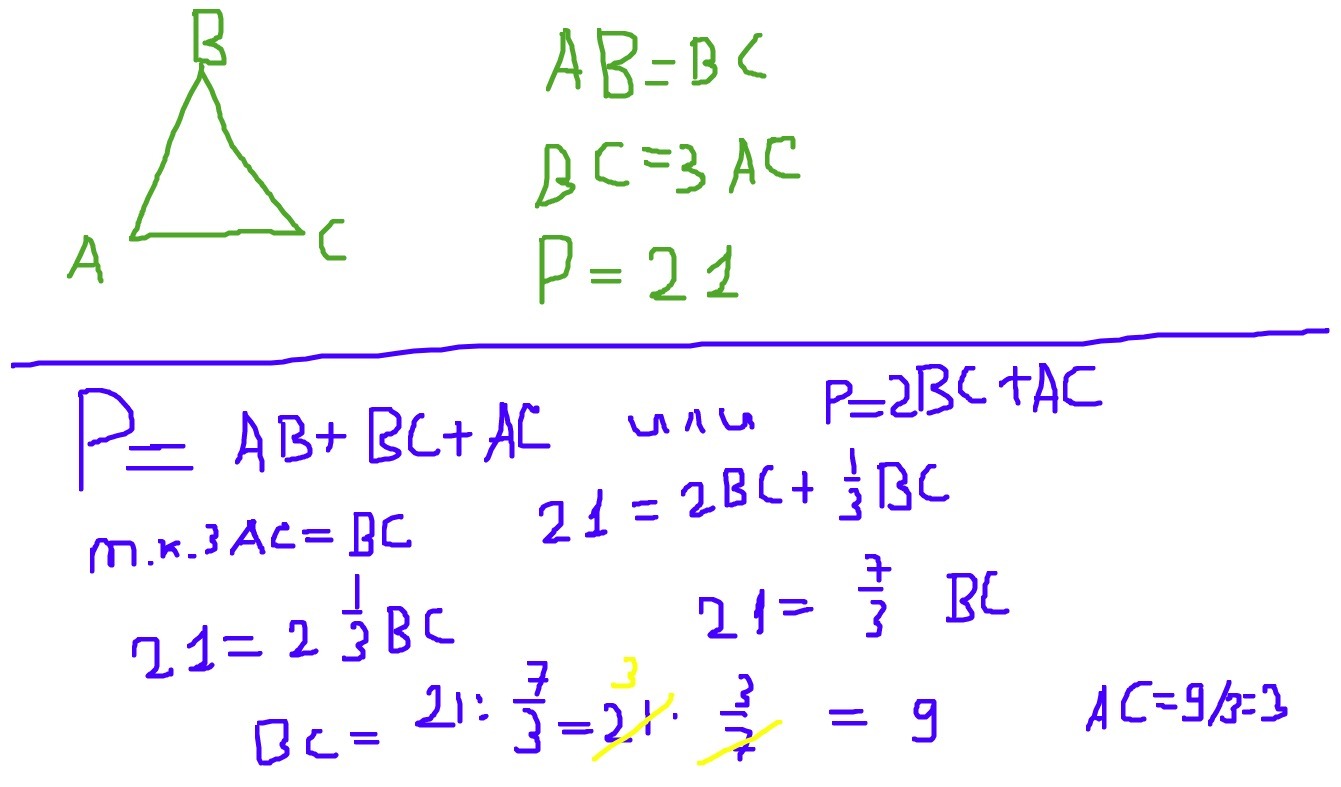 B
A
C
AB=BC
BC=3AC
P=21
P= AB+BC+AC или P=2BC+AC
т.к. 3AC=BC 21=2BC+1/3BC
21=2 1/3 BC 21= 7/3 BC
BC= 21: 7/3 = 21 · 3/7 = 9 AC=9/3=3
3